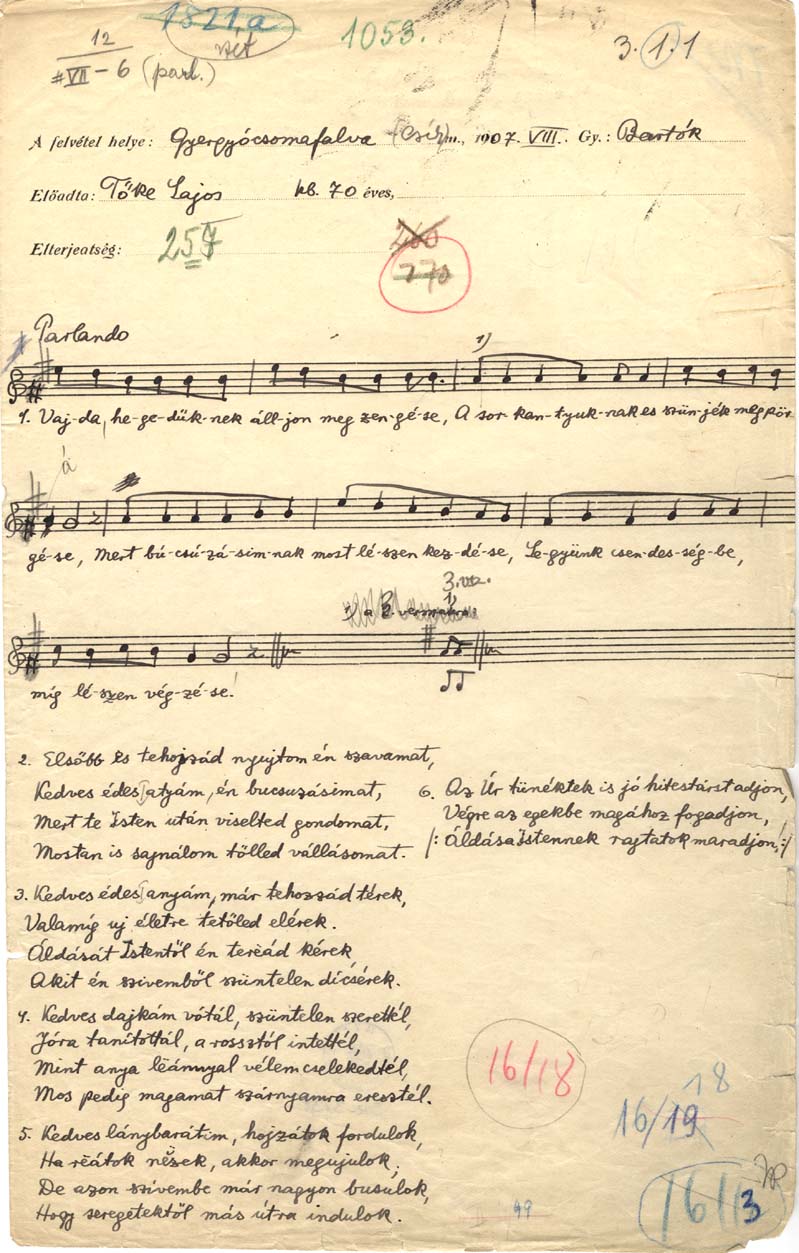 1321a
szét
1053.
3.1.1
12
VII - 6 (parl.)
A felvétel helye: Gyergyócsomafalva (Csík) m., 1907. VIII. Gy.: Bartók
Előadta: Tőke Lajos kb. 70 éves,
Elterjeatség: 257
260
770
Parlando
1)
1. Vaj-da, he-ge-dük-nek áll-jon meg zen-gé-se, A sor-kan-tyuk-nak es szün-jék meg pör-
á
gé-se, Mert bú-csú-zá-sim-nak most lé-szen kez-dé-se, Le-gyünk csen-des-ség-be,
3. vsz.
1)
míg lé-szen vég-zé-se!
2. Elsőbb és tehozzád nyujtom én szavamat,
Kedves édes atyám, én bucsuzásimat,
Mert te Isten után viselted gondomat,
Mostan is sajnálom tőlled vállásomat.
6. Az Úr tünéktek is jó hitestárst adjon,
Végre az egekbe magához fogadjon,
/: Áldása Istennek rajtatok maradjon, :/
3. Kedves édes anyám, már tehozzád térek,
Valamíg uj életre tetőled elérek.
Áldását Istentől én tereád kérek,
Akit én szivemből szüntelen dícsérek.
4. Kedves dajkám vótál, szüntelen szerettél,
Jóra tanítottál, a rossztól intettél,
Mint anya lëánnyal vélem cselekedtél,
Mos pedig magamat szárnyamra eresztél.
5. Kedves lánybarátim, hojzátok fordulok,
Ha rëátok nëzek, akkor megujulok,
De azon szivembe már nagyon busulok,
Hogy seregetektől más útra indulok.
16/18
18
16/19
16/13
49